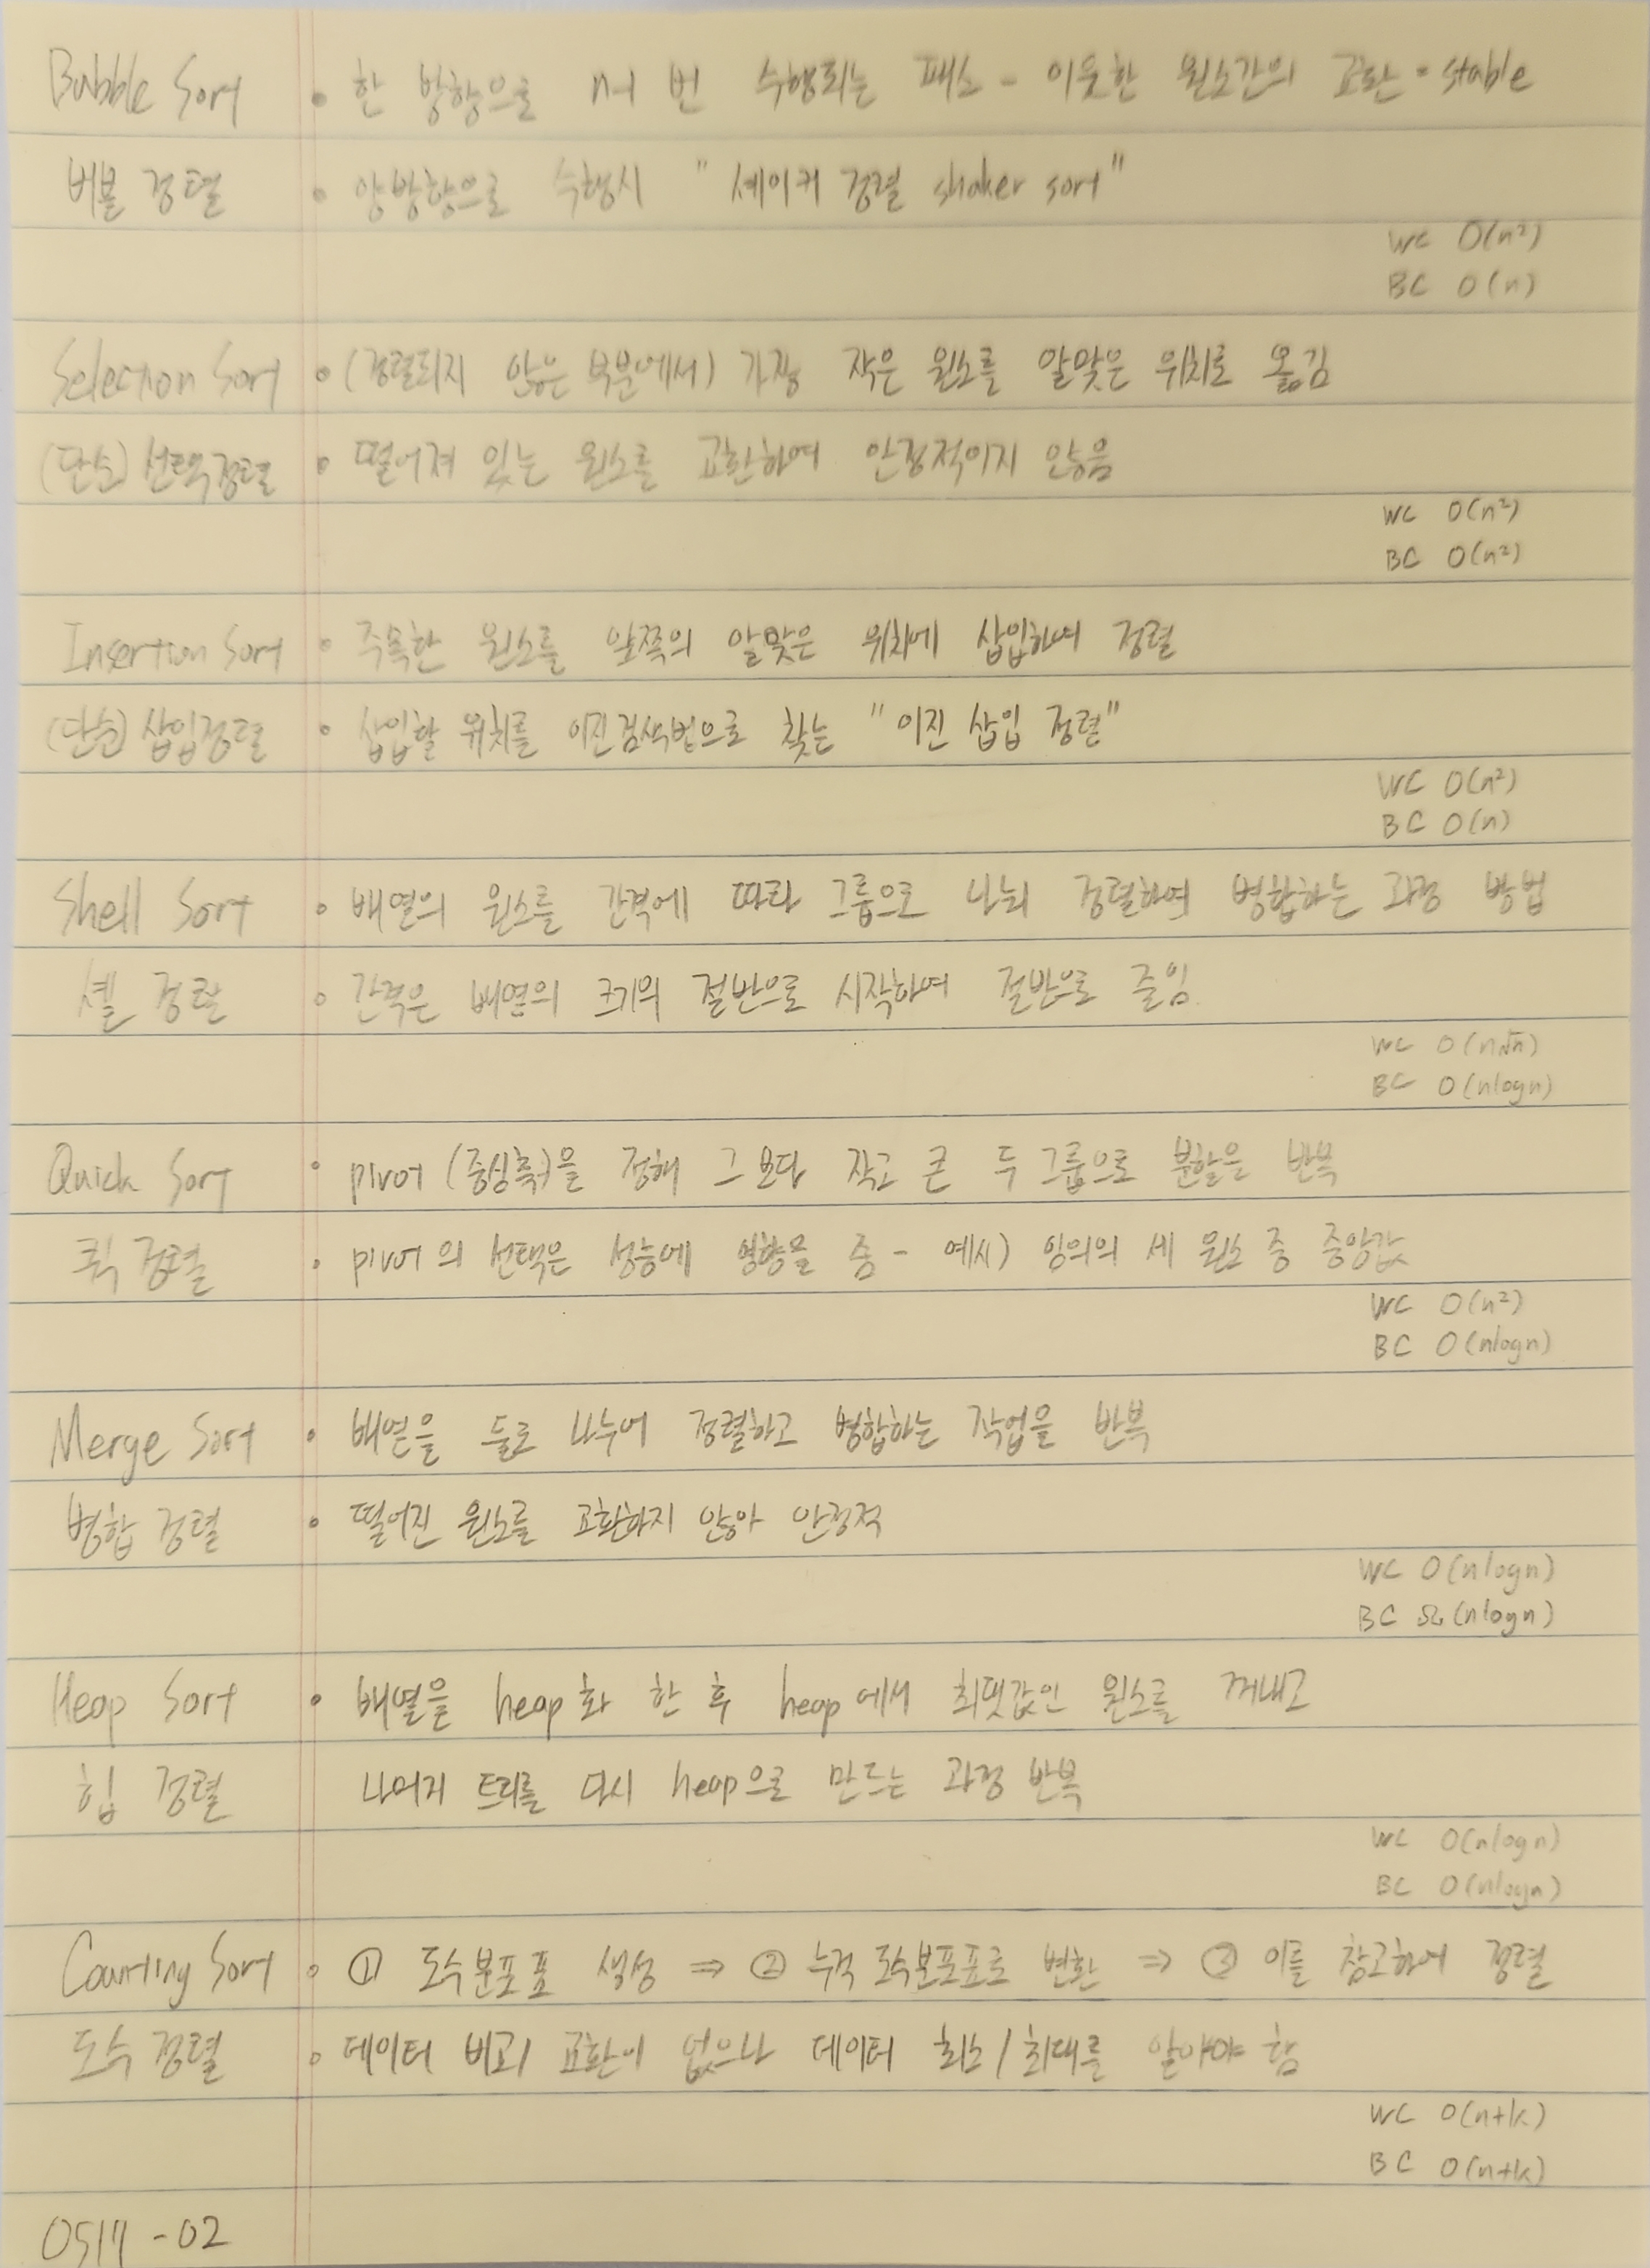 Bubble Sort • 한 방향으로 n-1 번 수행되는 패스 - 이웃한 원소간의 교환 • stable
버블 정렬 • 양방향으로 수행시 "셰이커 정렬 shaker sort"
WC O(n²)
BC O(n)
Selection Sort • (정렬되지 않은 부분에서) 가장 작은 원소를 알맞은 위치로 옮김
(단순) 선택정렬 • 떨어져 있는 원소를 교환하여 안정적이지 않음
WC O(n²)
BC O(n²)
Insertion Sort • 주목한 원소를 앞쪽의 알맞은 위치에 삽입하여 정렬
(단순) 삽입정렬 • 삽입할 위치를 이진검색법으로 찾는 "이진 삽입 정렬"
WC O(n²)
BC O(n)
Shell Sort • 배열의 원소를 간격에 따라 그룹으로 나눠 정렬하여 병합하는 과정 방법
셸 정렬 • 간격은 배열의 크기의 절반으로 시작하여 절반으로 줄임
WC O(n√n)
BC O(nlogn)
Quick Sort • pivot (중심축)을 정해 그 보다 작고 큰 두 그룹으로 분할을 반복
퀵 정렬 • pivot의 선택은 성능에 영향을 줌 - 예시) 임의의 세 원소 중 중앙값
WC O(n²)
BC O(nlogn)
Merge Sort • 배열을 둘로 나누어 정렬하고 병합하는 작업을 반복
병합 정렬 • 떨어진 원소를 교환하지 않아 안정적
WC O(nlogn)
BC Ω(nlogn)
Heap Sort • 배열을 heap화 한 후 heap에서 최댓값인 원소를 꺼내고
힙 정렬 나머지 트리를 다시 heap으로 만드는 과정 반복
WC O(nlogn)
BC O(nlogn)
Counting Sort • ① 도수분포표 생성 ⇒ ② 누적 도수분포표로 변환 ⇒ ③ 이를 참고하여 정렬
도수 정렬 • 데이터 비교/ 교환이 없으나 데이터 최소/최대를 알아야 함
WC O(n+k)
BC O(n+k)
0517 - 02